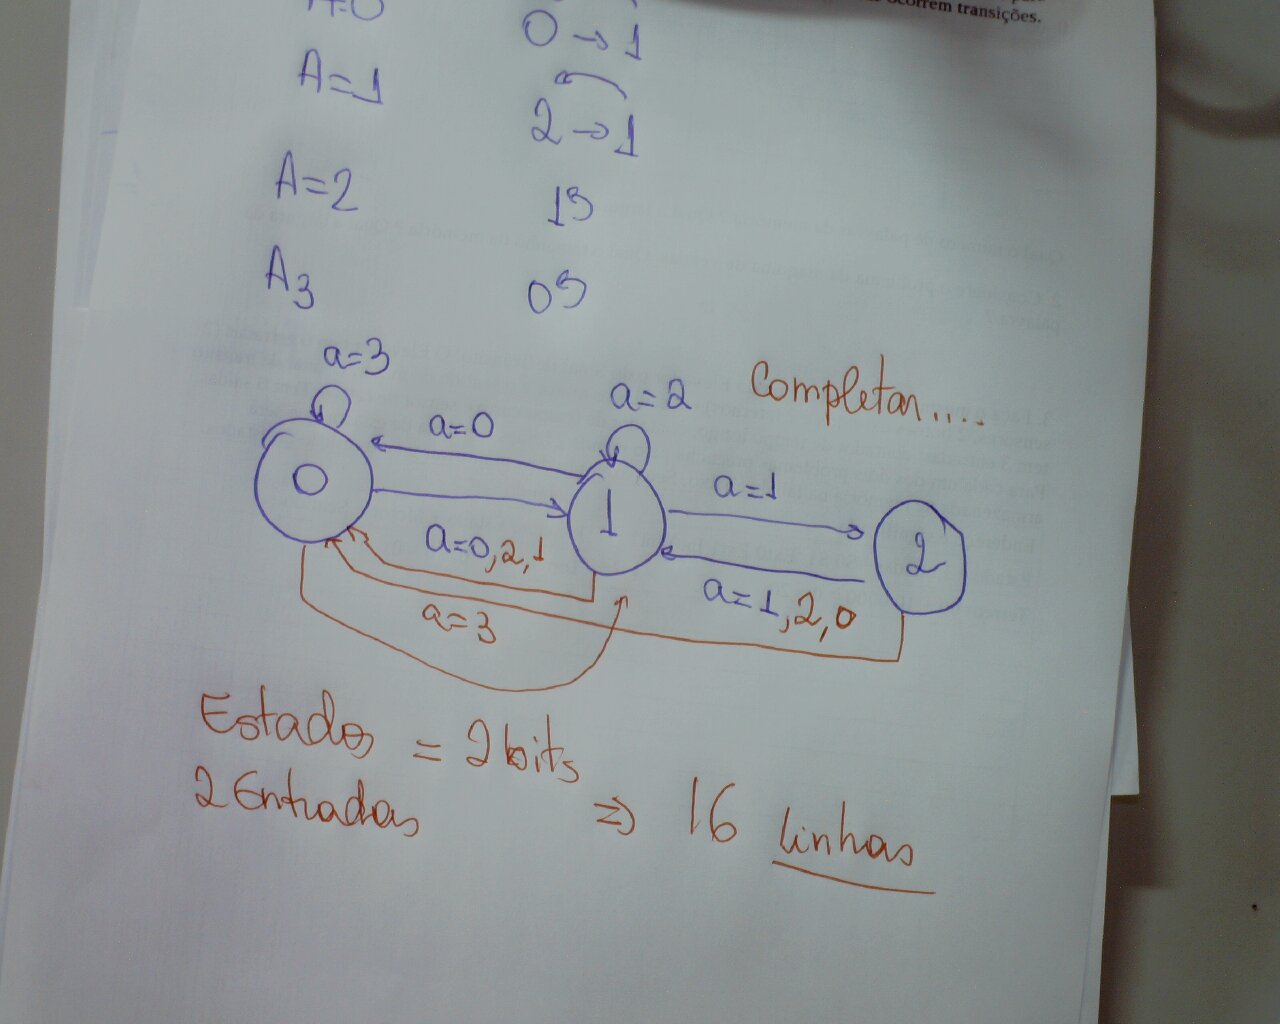 ocorrem transições.
A=0
0 → 1
A=1
2 → 1
A=2
1S
A3
0S
a=3
a=2
Completar....
a=0
0
1
a=1
2
a=0,2,1
a=1,2,0
a=3
Estados = 2 bits
2 Entradas ⇒ 16 linhas